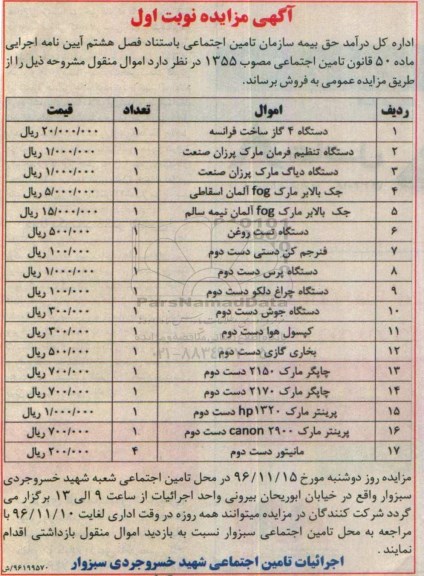 آگهی مزایده نوبت اول
اداره کل درآمد حق بیمه سازمان تامین اجتماعی باستناد فصل هشتم آیین نامه اجرایی
ماده ۵۰ قانون تامین اجتماعی مصوب ۱۳۵۵ در نظر دارد اموال منقول مشروحه ذیل را از
طریق مزایده عمومی به فروش برساند.
ردیف اموال تعداد قیمت
۱ دستگاه ۴ گاز ساخت فرانسه ۱ ۲۰/۰۰۰/۰۰۰ ریال
۲ دستگاه تنظیم فرمان مارک پرزان صنعت ۱ ۱/۰۰۰/۰۰۰ ریال
۳ دستگاه دیاگ مارک پرزان صنعت ۱ ۱/۰۰۰/۰۰۰ ریال
۴ جک بالابر مارک fog آلمان اسقاطی ۱ ۵/۰۰۰/۰۰۰ ریال
۵ جک بالابر مارک fog آلمان نیمه سالم ۱ ۱۵/۰۰۰/۰۰۰ ریال
۶ دستگاه تست روغن ۱ ۵۰۰/۰۰۰ ریال
۷ فنرجم کن دستی دست دوم ۱ ۱۰۰/۰۰۰ ریال
۸ دستگاه پرس دست دوم ۱ ۱/۰۰۰/۰۰۰ ریال
۹ دستگاه چراغ دلکو دست دوم ۱ ۱۰۰/۰۰۰ ریال
۱۰ دستگاه جوش دست دوم ۱ ۳۰۰/۰۰۰ ریال
۱۱ کپسول هوا دست دوم ۱ ۳۰۰/۰۰۰ ریال
۱۲ بخاری گازی دست دوم ۱ ۵۰۰/۰۰۰ ریال
۱۳ چاپگر مارک ۲۱۵۰ دست دوم ۱ ۷۰۰/۰۰۰ ریال
۱۴ چاپگر مارک ۲۱۷۰ دست دوم ۱ ۷۰۰/۰۰۰ ریال
۱۵ پرینتر مارک hp۱۳۲۰ دست دوم ۱ ۱/۰۰۰/۰۰۰ ریال
۱۶ پرینتر مارک canon ۲۹۰۰ دست دوم ۱ ۷۰۰/۰۰۰ ریال
۱۷ مانیتور دست دوم ۴ ۲۰۰/۰۰۰ ریال
ParsNamadData
مزایده روز دوشنبه مورخ ۹۶/۱۱/۱۵ در محل تامین اجتماعی شعبه شهید خسروجردی
سبزوار واقع در خیابان ابوریحان بیرونی واحد اجرائیات از ساعت ۹ الی ۱۳ برگزار می
گردد شرکت کنندگان در مزایده میتوانند همه روزه در وقت اداری لغایت ۹۶/۱۱/۱۰ با
مراجعه به محل تامین اجتماعی سبزوار نسبت به بازدید اموال منقول بازداشتی اقدام
نمایند .
اجرائیات تامین اجتماعی شهید خسروجردی سبزوار
۹۶۱۹۹۵۷۰/ش